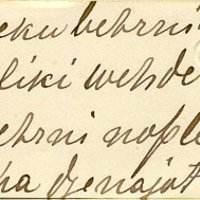 eku behrni
liki wehde
ehrni nofle
ha dzenajot